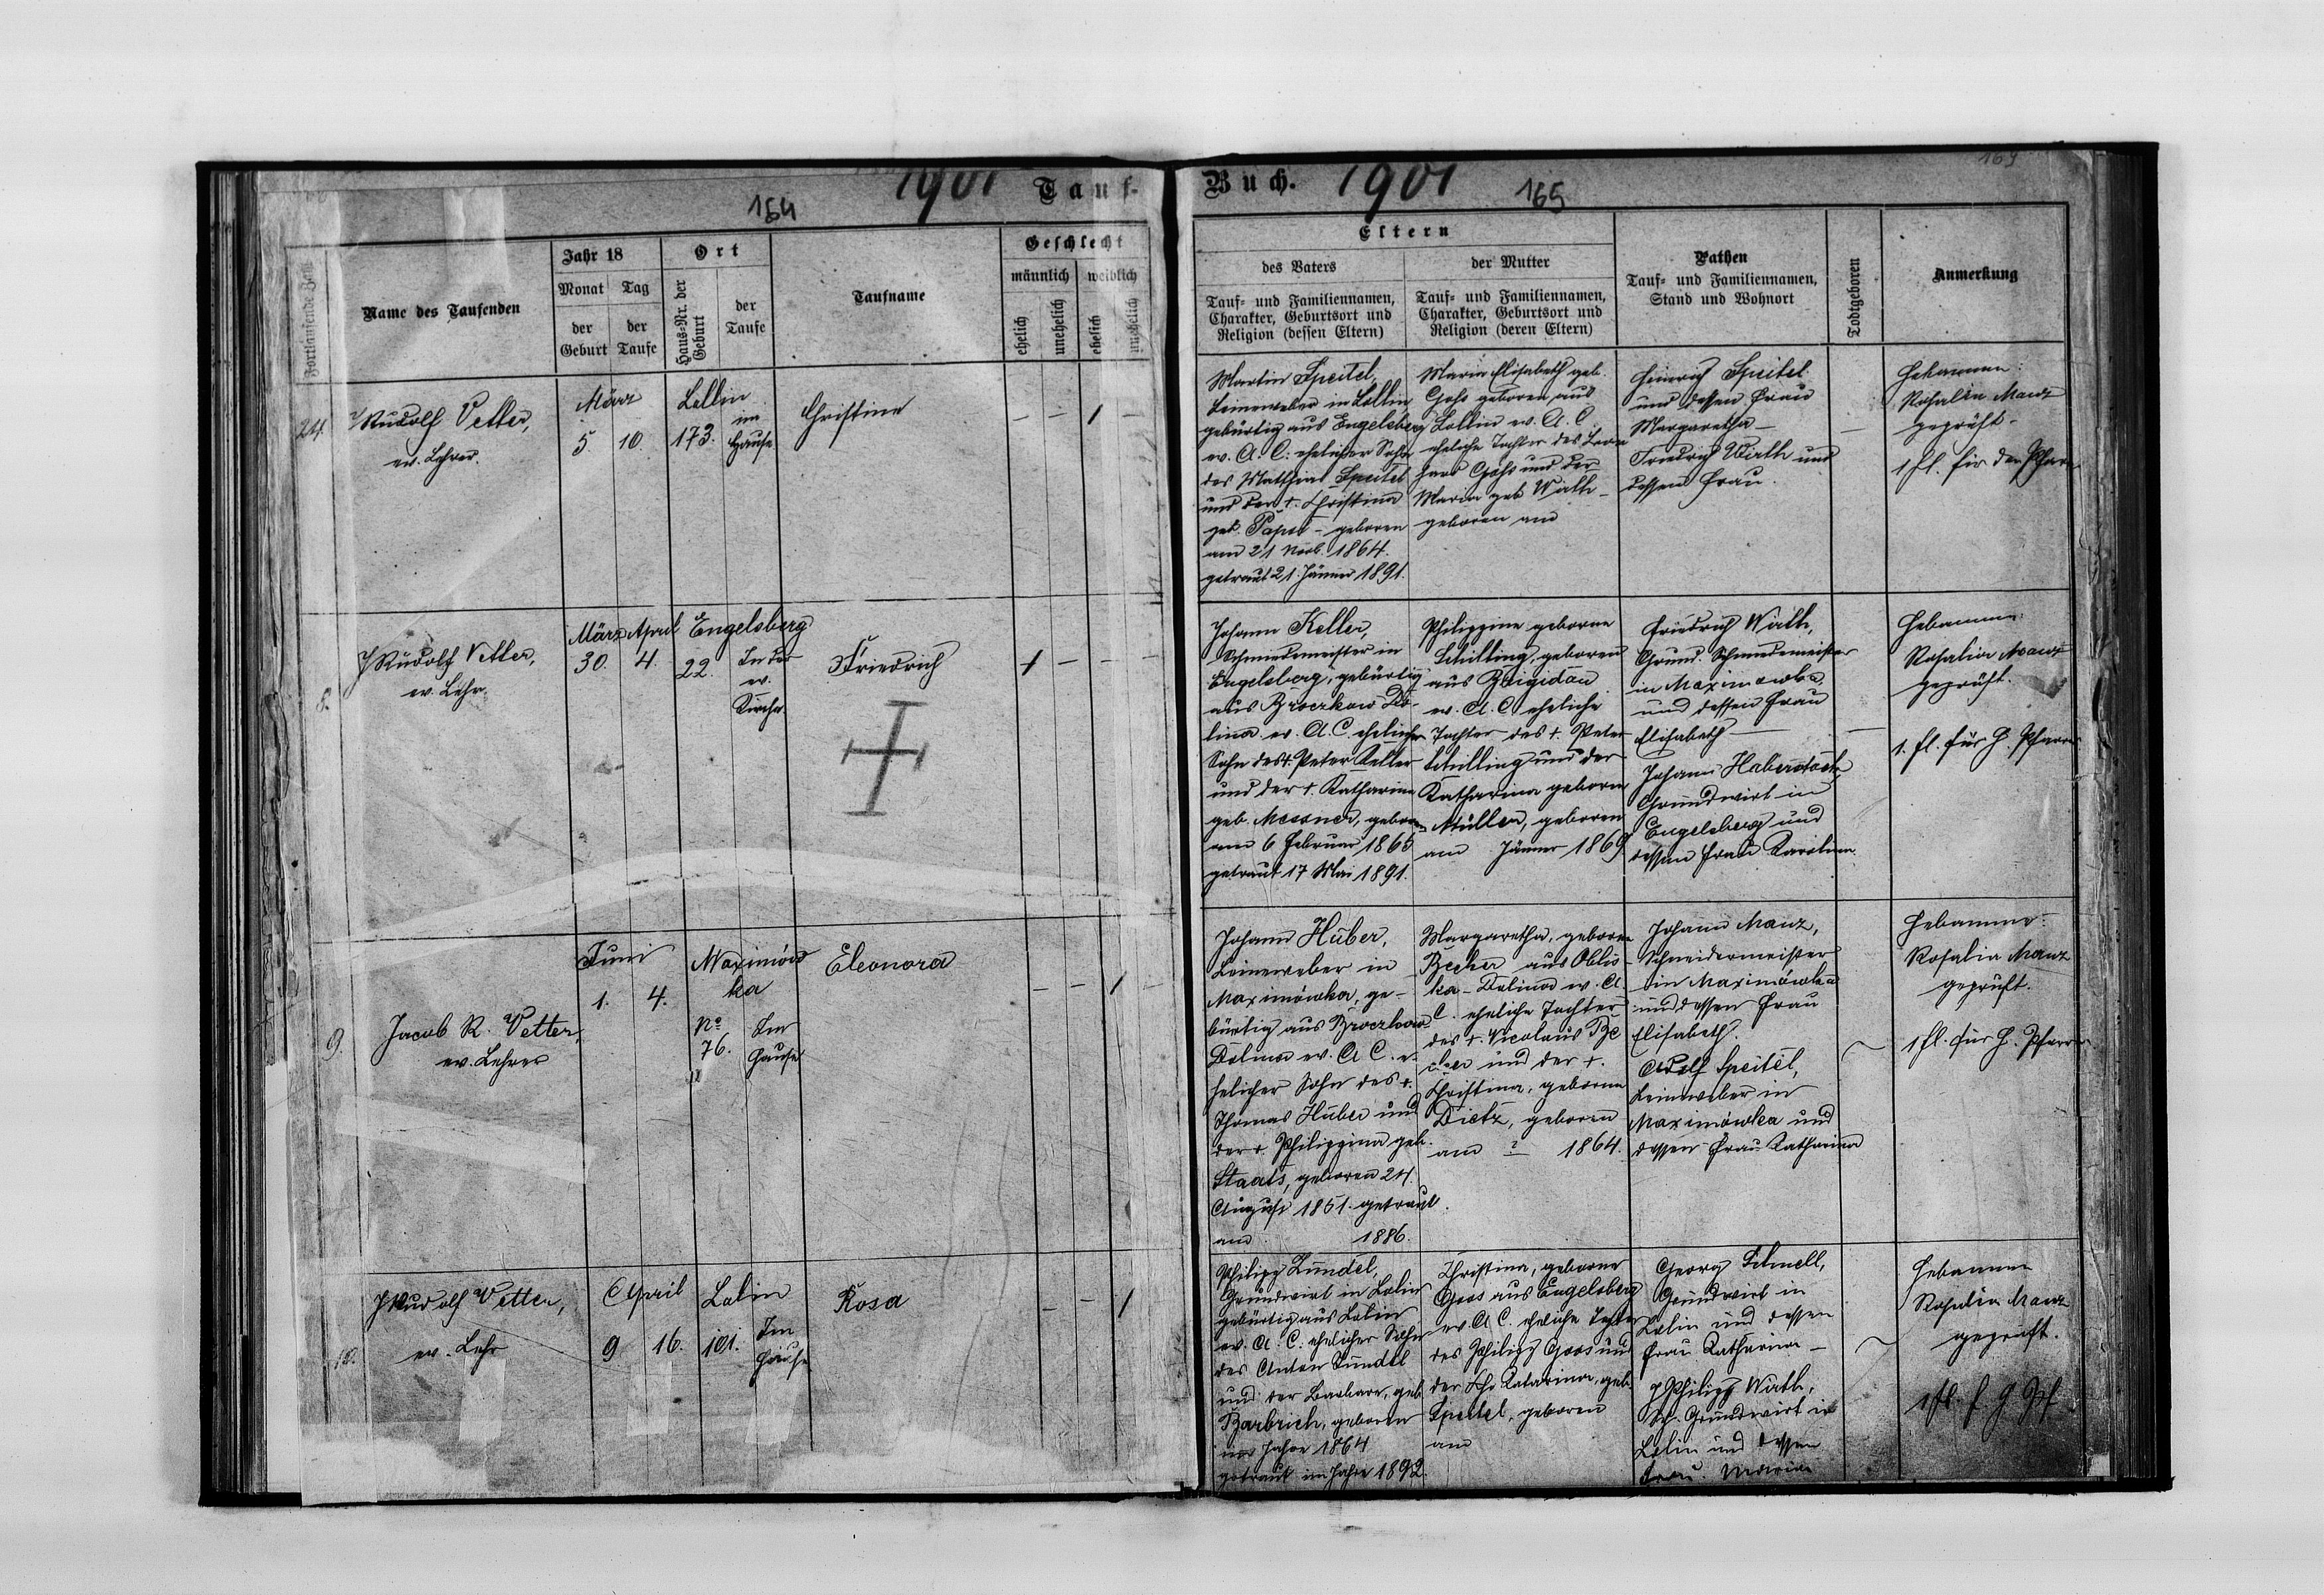 1901 Tauf-
164
Fortlaufende Zahl
Name des Taufenden
Jahr 18
Monat Tag
der Geburt
der Taufe
Ort
Haus-Nr. der Geburt
der Taufe
Taufname
Geschlecht
männlich weiblich
ehelich
unehelich
ehelich
unehelich
24.
J Rudolf Vetter,
ev. Lehrer.
März
5. 10.
Lollin
173.
im
Hause
Christine
— — 1 —
8.
J Rudolf Vetter,
ev. Lehr.
März April
30. 4.
Engelsberg
22.
In der
ev.
Kirche
Friedrich
1 — — —
9.
Jacob R. Vetter,
ev. Lehrer
Juni
1. 4.
Maximów
ka
No
76.
Im
Hause
Eleonora
— — 1 —
10.
J Rudolf Vetter,
ev. Lehr
April
9 16.
Lolin
101.
Im
Hause
Rosa
— — 1
Buch. 1901
165
169
Eltern
des Vaters
Tauf- und Familiennamen,
Charakter, Geburtsort und
Religion (dessen Eltern)
der Mutter
Tauf- und Familiennamen,
Charakter, Geburtsort und
Religion (deren Eltern)
Pathen
Tauf- und Familiennamen,
Stand und Wohnort
Todtgeboren
Anmerkung
Martin Speitel,
Leineweber in Lollin
gebürtig aus Engelsberg
ev. A. C. ehelicher Sohn
des Matthias Speitel
und der +. Christina
geb. - geboren
am 21 Novb. 1864.
getraut 21. Jänner 1891.
Maria Elisabeth geb.
geboren aus
Lollin ev. A. C.
eheliche Tochter des Leon
hard und der
Maria geb. Wirth -
geboren am
Heinrich Speitel
und dessen Frau
Margaretha —
Friedrich Wirth und
dessen Frau.
—
Hebamme:
Rosalia Manz
geprüft.
1 fl. für den Pfarr
Johann Keller,
Schmiedemeister in
Engelsberg, gebürtig
aus Broczkow Do-
lina. ev. A. C. ehelicher
Sohn des +. Peter Keller
und der +. Katharina
geb. Messner, geboren
am 6 Februar 1865
getraut 17 Mai 1891.
Philippine geborne
Schilling, geboren
aus Brigidau
ev. A. C. eheliche
Tochter des +. Peter
Schilling und der
Katharina geborne
Müller, geboren
am Jänner 1869
Friedrich Wirth,
Grund. Schmiedemeister
in Maximowka
und dessen Frau
Elisabeth —
Johann Haberstock
Grundwirt in
Engelsberg und
dessen Frau Karoline.
—
Hebamme:
Rosalia Manz
geprüft.
1. fl. für H. Pfarrer
Johann Huber,
Leineweber in
Maximówka, ge-
bürtig aus Broczkow
Dolina ev. A. C. e-
helicher Sohn des +.
Thomas Huber und
der +. Philippina geb.
Staats, geboren 24.
August 1851. getraut
am 1886.
Margaretha, geborne
Becher aus Oblis-
ka - Dolina ev. A.
C. eheliche Tochter
des +. Nicolaus Be
cher und der +.
Christina, geborne
Dietz, geboren
am ? 1864.
Johann Manz,
Schneidermeister
in Maximówka
und dessen Frau
Elisabeth.
Adolf Speitel,
Leineweber in
Maximówka und
dessen Frau Katharina
Hebamme:
Rosalia Manz
geprüft.
1 fl. für H. Pfarrer
Philipp Zündel,
Grundwirt in Lolin
gebürtig aus Lolin
ev. A. C. ehelicher Sohn
des Anton Zündel
und der Barbara, geb.
Barbrich, geboren
im Jahre 1864
getraut im Jahre 1892.
Christina, geborne
Goos aus Engelsberg
ev. A. C. eheliche Tochter
des Philipp Goos und
der Katarina, geb.
Speitel, geboren
am
Georg Schnell,
Grundwirt in
Lolin und dessen
Frau Katharina —
Philipp Wirth,
Grundwirt in
Lolin und dessen
Frau Maria
Hebamme
Rosalia Manz
geprüft.
1 fl. f. H. Pf.